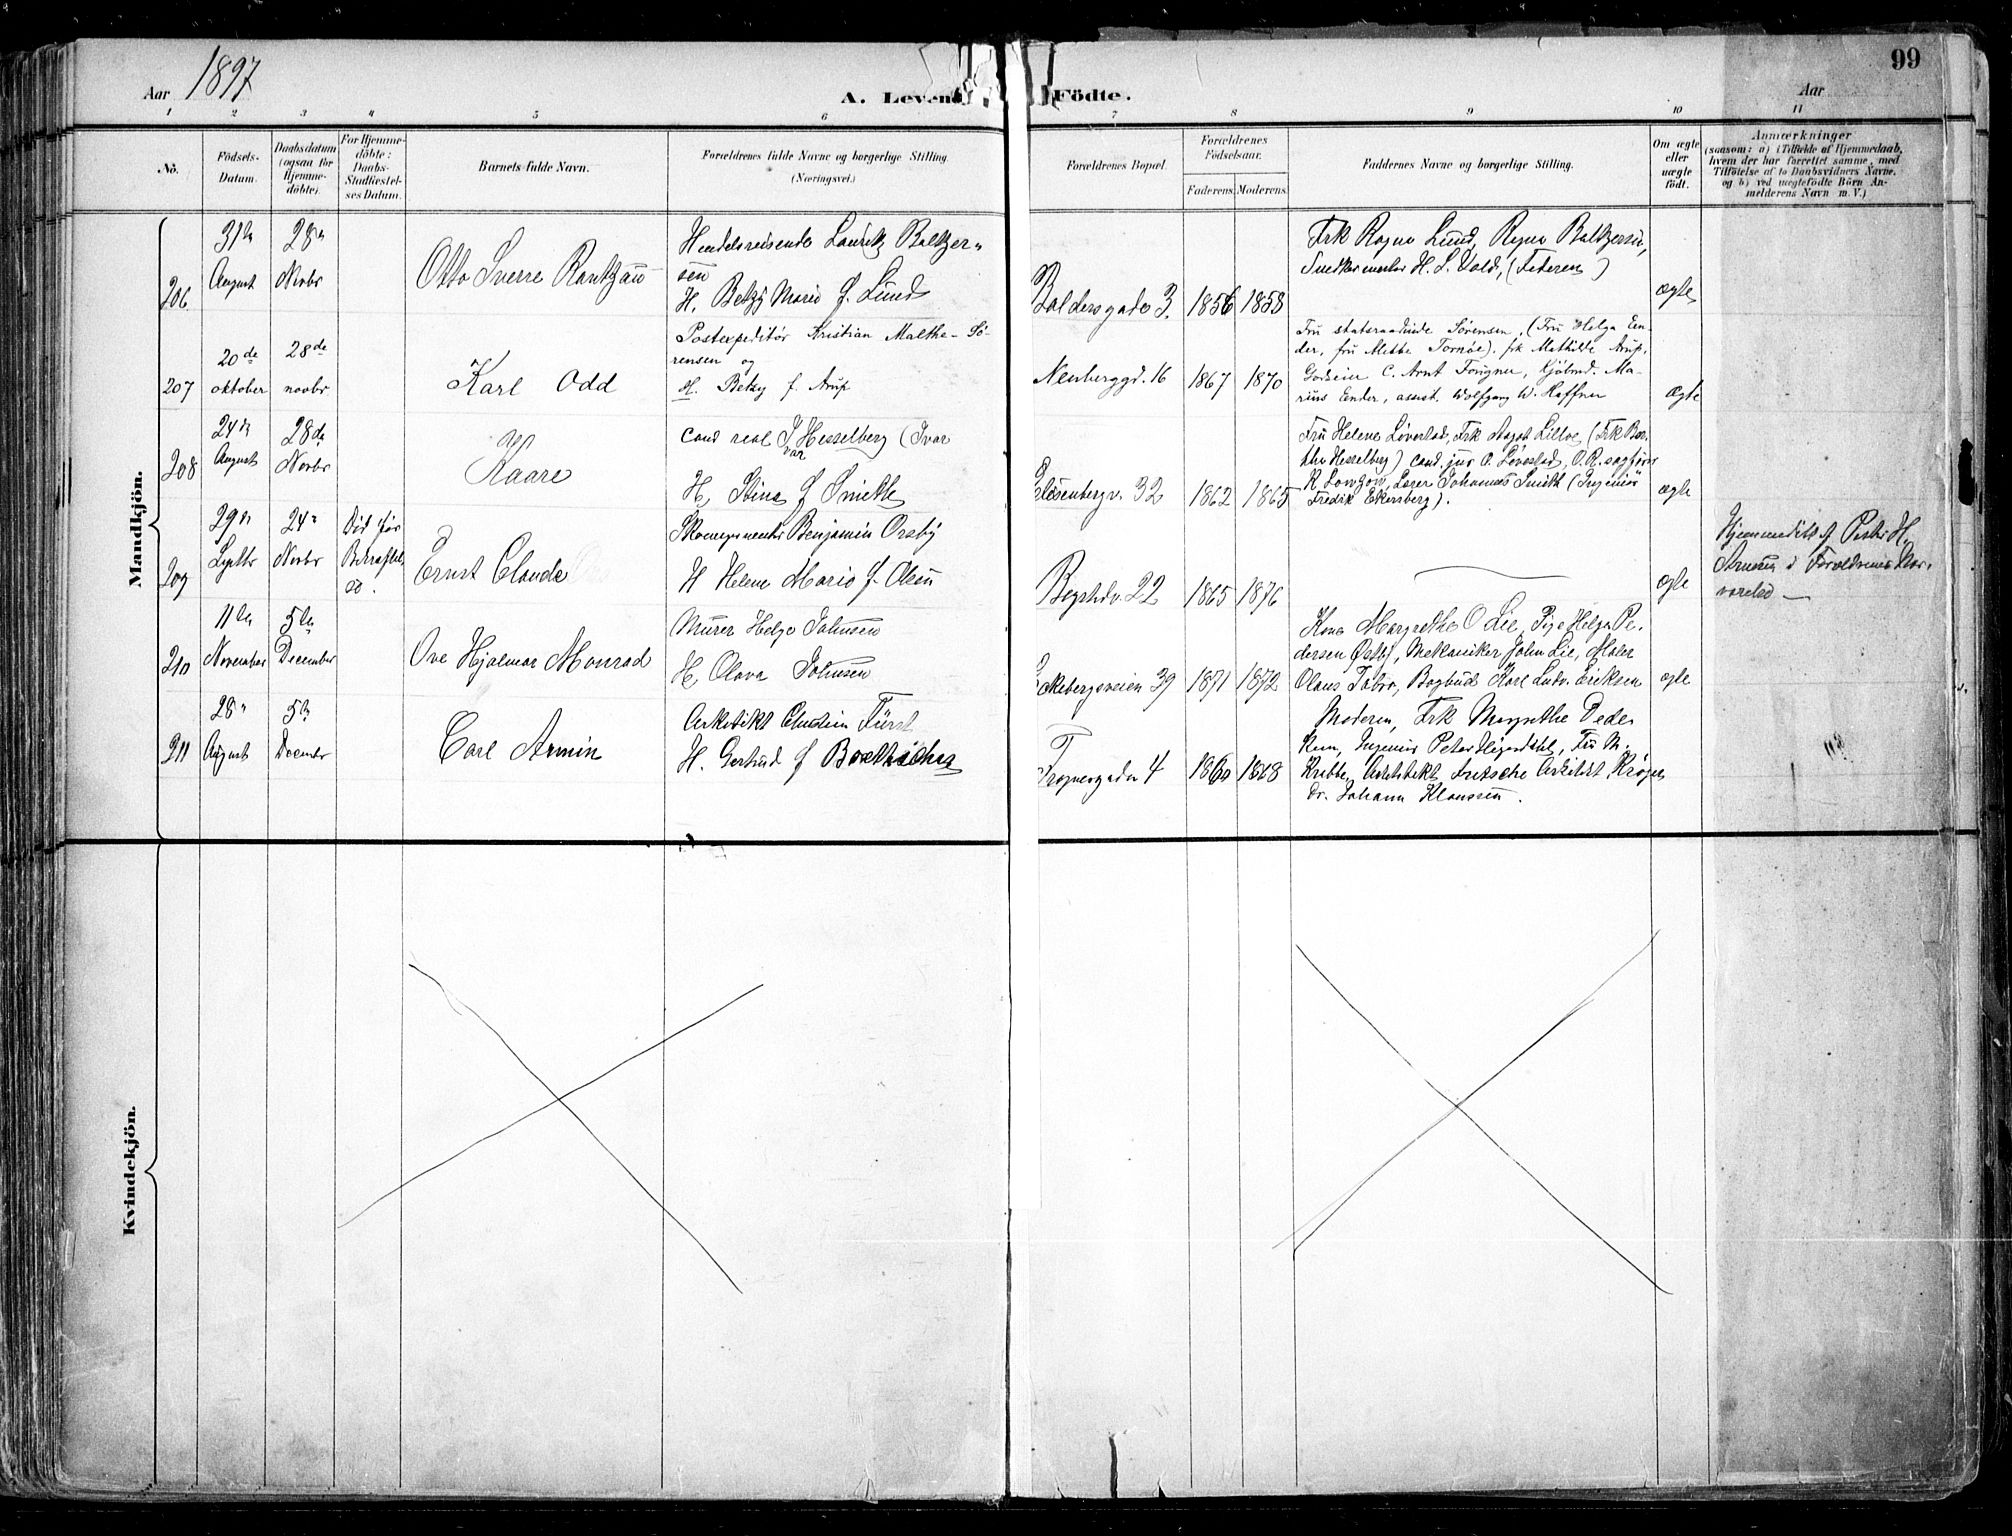 99
Aar 1897
A. Levend Födte.
Aar
1 2 3 4 5 6 7 8 9 10 11
No.
Födsels-Datum.
Daabsdatum (ogsaa for Hjemme-döbte).
For Hjemme-döbte: Daabs-Stadfæstel-ses Datum.
Barnets fulde Navn.
Forældrenes fulde Navne og borgerlige Stilling. (Næringsvei.)
Forældrenes Bopæl.
Forældrenes Födselsaar.
Faderens. Moderens.
Faddernes Navne og borgerlige Stilling.
Om ægte eller uægte födt.
Anmærkninger
(saasom: a) i Tilfælde af Hjemmedaab,
hvem der har forrettet samme, med
Tilföielse af to Daabsvidners Navne.
og b) ved uægtefödte Börn An-
melderens Navn m. V.)
Mandkjön.
206
31te August
28de Novbr
Otto Sverre Rantzau
Handelsreisende Lauritz Baltzer-
sen
H. Betzy Marie f. Lund
Baldersgade 3.
1856 1858
Frk Ragna Lund, Ragna Baltzersen,
Snedkermester H. L. Vold, (Faderen)
ægte
207
20de oktober
28de novbr
Karl Odd
Postexpeditör Kristian Malthe-Sö-
rensen og
H. Betzy f Arup
Neuberggd. 16
1867 1870
Fru statsraadinde Sörensen, (Fru Helga Een-
der, fru Mette Tornöe). frk Mathilde Arup,
Godseier C. Arnt Forigner, Kjöbmd. Ma-
rius Eender, assist. Wolfgang W. Haffner
ægte
208
24de August
28de Novbr
Kaare
Cand real I Hesselberg (Ivar
var
H, Stina f Smith
Eilesenbergv. 32
1862 1865
Fru Helene Løvestad, Frk Aagot Lilloe, (Frk Ber-
tha Hesselberg) cand. jur O. Løvestad, O.R. sagfører
K Lowzow, Læser Johannes Smith (Ingeniør
Fredrik Ekersberg).
ægte
209
29de
24de Novbr
Död før
Bekræftel
se.
Ernst Claude
Skomagermester Benjamin Orsby
H Helene Marie f. Olsen
Bogstadv. 22
1865 1876
ægte
Hjemmedöbt af Pester H.
i Forældrenes Nær-
værelse —
210
11te November
5te December
Ove Hjalmar Monrad
Murer Helge Johnsen
H, Olava Johnsen
Eckebergsveien 39
1871 1872
Kone Margrethe O Lie, Pige Helga Pe-
dersen Østby, Mekaniker John Lie, Maler
Olaus Tobro, Bogbind Karl Ludv. Eriksen
ægte
211
28de August
5te December
Carl Armin
Arkitekt Christian Fürst
H. Gertrud f
Frognergaden 4
1860 1868
Moderen, Frk Margrethe Dede
Kam, Ingeniør Peter Higerdahl, Fru M.
Krebbe, Arkitekt Fritsche Arkitekt Krøger
Dr. Johann Klaussen.
Kvindekjön.